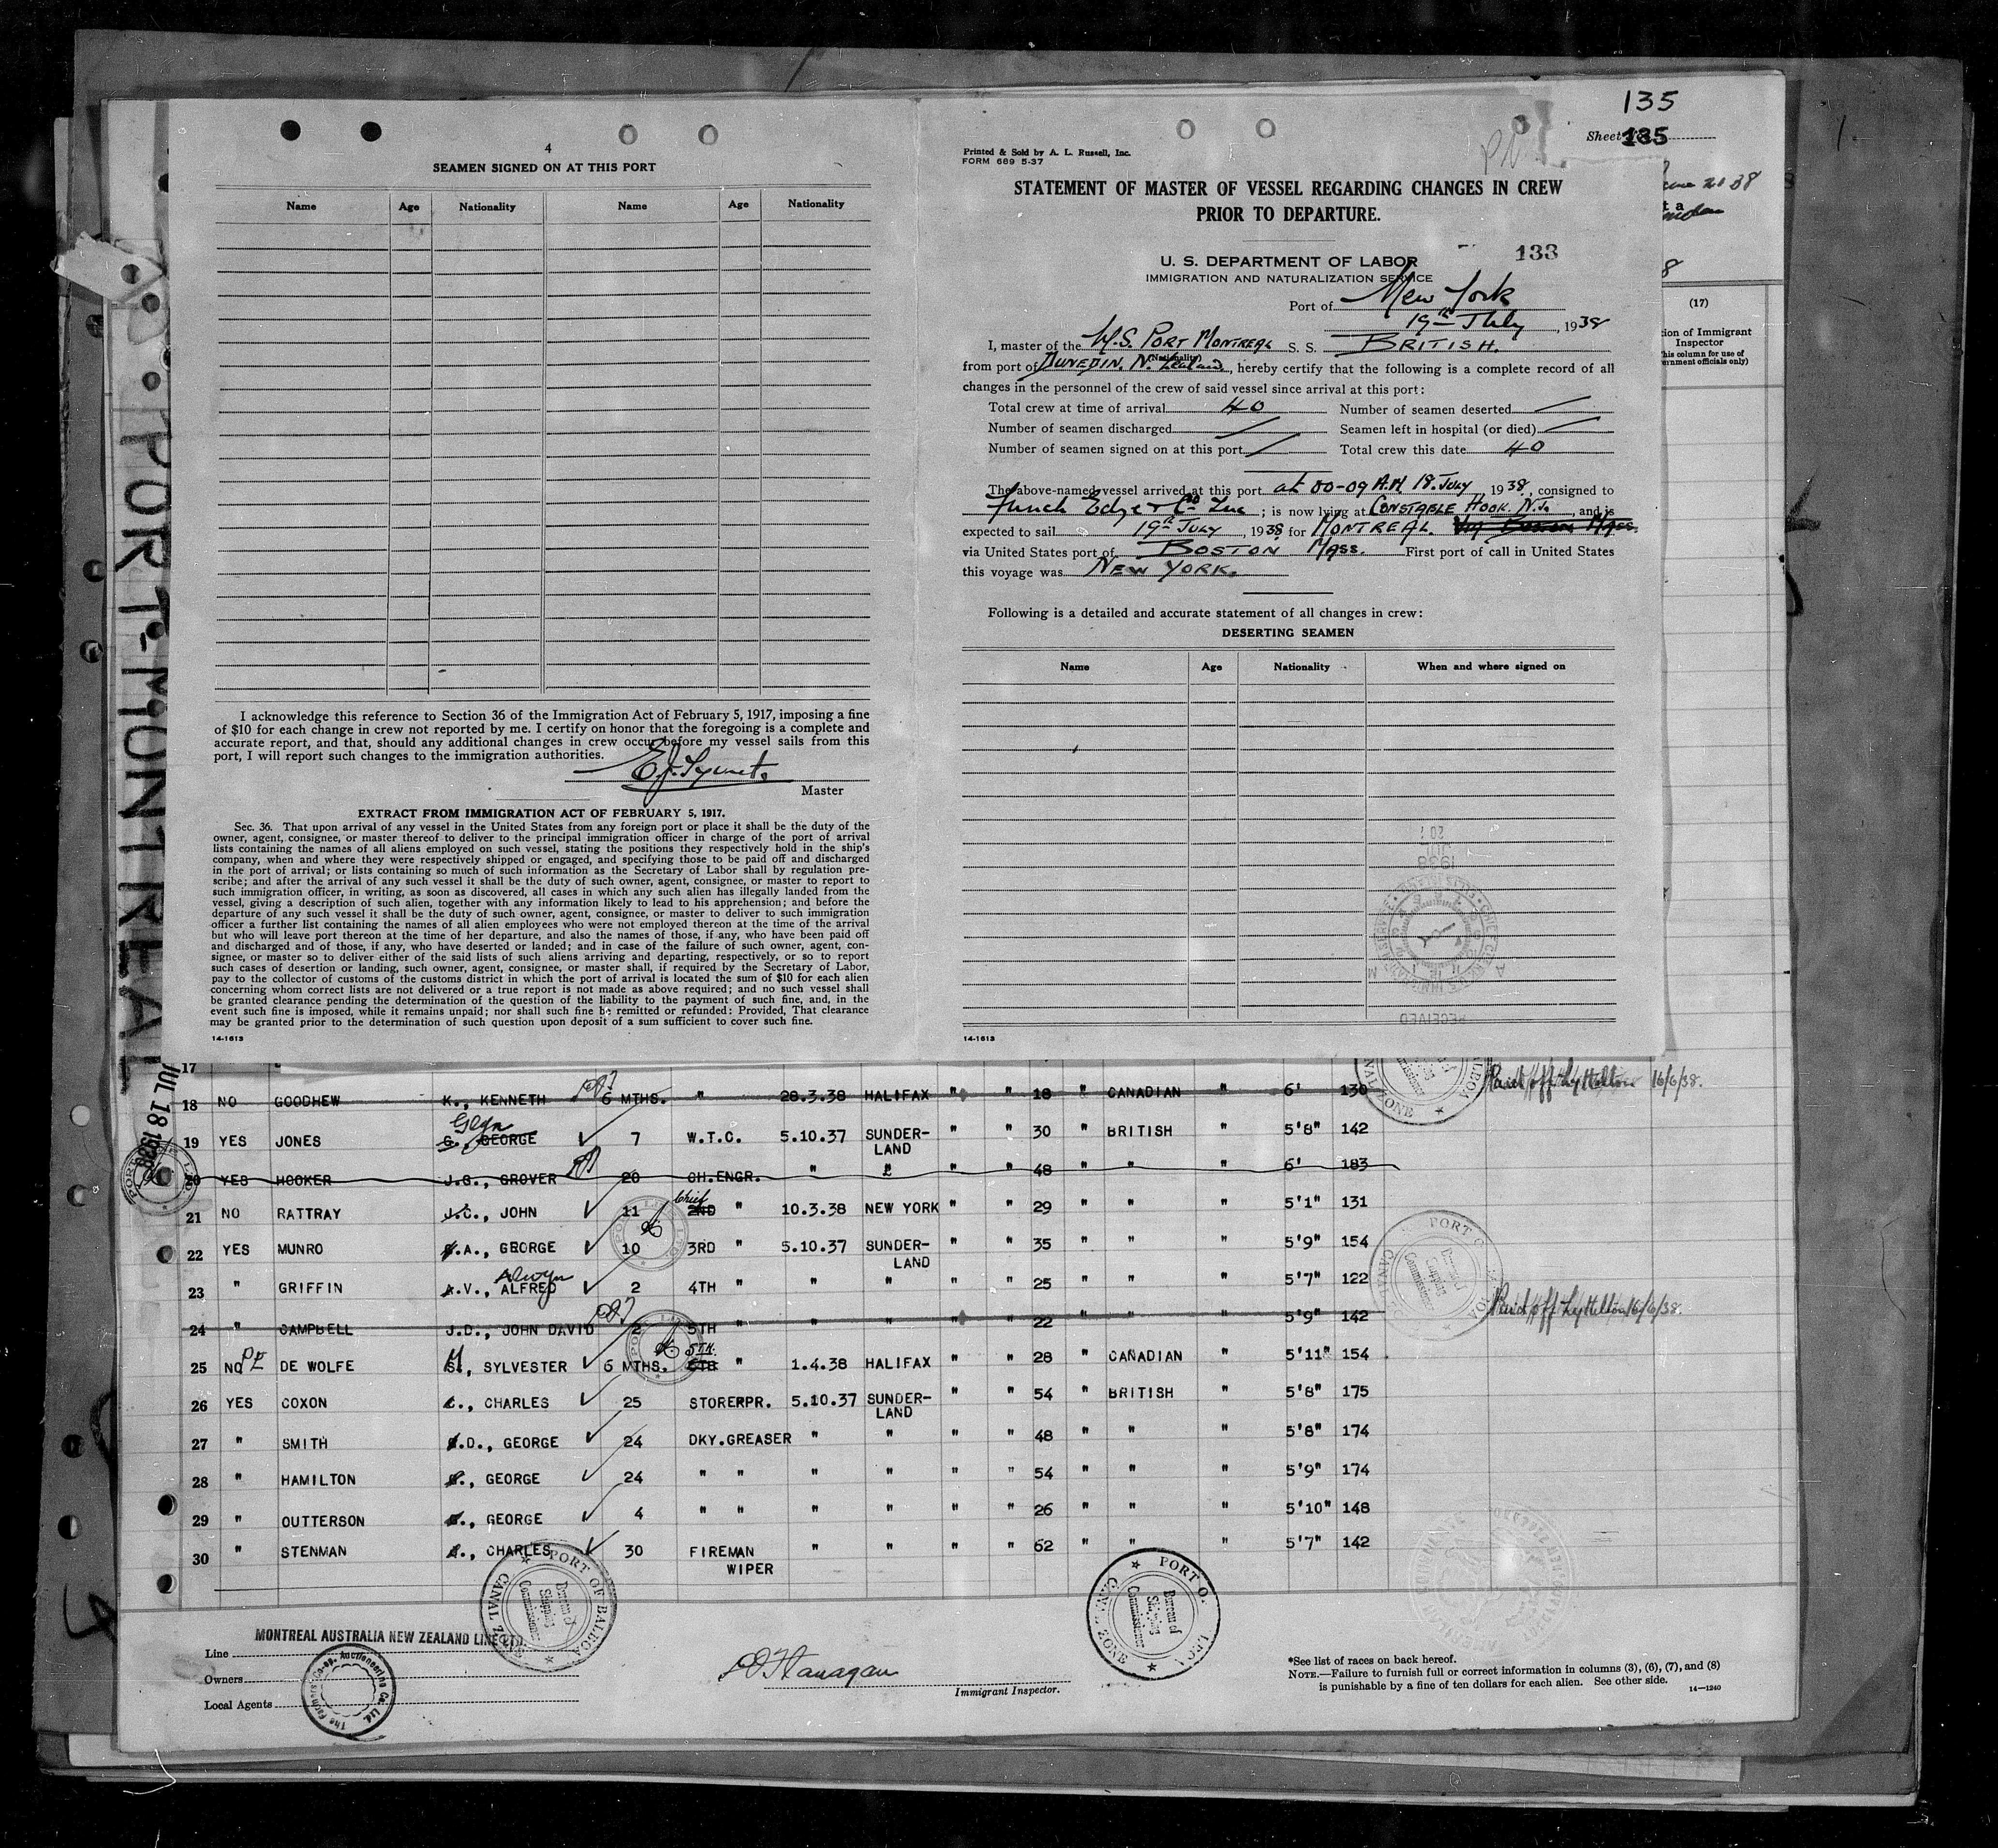 135
Sheet 135
4
SEAMEN SIGNED ON AT THIS PORT
Name Age Nationality Name Age Nationality
I acknowledge this reference to Section 36 of the Immigration Act of February 5, 1917, imposing a fine
of $10 for each change in crew not reported by me. I certify on honor that the foregoing is a complete and
accurate report, and that, should any additional changes in crew occur before my vessel sails from this
port, I will report such changes to the immigration authorities.
Master
EXTRACT FROM IMMIGRATION ACT OF FEBRUARY 5, 1917.
Sec. 36. That upon arrival of any vessel in the United States from any foreign port or place it shall be the duty of the
owner, agent, consignee, or master thereof to deliver to the principal immigration officer in charge of the port of arrival
lists containing the names of all aliens employed on such vessel, stating the positions they respectively hold in the ship's
company, when and where they were respectively shipped or engaged, and specifying those to be paid off and discharged
in the port of arrival; or lists containing so much of such information as the Secretary of Labor shall by regulation pre-
scribe; and after the arrival of any such vessel it shall be the duty of such owner, agent, consignee, or master to report to
such immigration officer, in writing, as soon as discovered, all cases in which any such alien has illegally landed from the
vessel, giving a description of such alien, together with any information likely to lead to his apprehension; and before the
departure of any such vessel it shall be the duty of such owner, agent, consignee, or master to deliver to such immigration
officer a further list containing the names of all alien employees who were not employed thereon at the time of the arrival
but who will leave port thereon at the time of her departure, and also the names of those, if any, who have been paid off
and discharged and of those, if any, who have deserted or landed; and in case of the failure of such owner, agent, con-
signee, or master so to deliver either of the said lists of such aliens arriving and departing, respectively, or so to report
such cases of desertion or landing, such owner, agent, consignee, or master shall, if required by the Secretary of Labor,
pay to the collector of customs of the customs district in which the port of arrival is located the sum of $10 for each alien
concerning whom correct lists are not delivered or a true report is not made as above required; and no such vessel shall
be granted clearance pending the determination of the question of the liability to the payment of such fine, and, in the
event such fine is imposed, while it remains unpaid; nor shall such fine be remitted or refunded: Provided, That clearance
may be granted prior to the determination of such question upon deposit of a sum sufficient to cover such fine.
14-1613
Printed & Sold by A. L. Russell, Inc.
FORM 689 5-37
STATEMENT OF MASTER OF VESSEL REGARDING CHANGES IN CREW
PRIOR TO DEPARTURE.
133
U. S. DEPARTMENT OF LABOR
IMMIGRATION AND NATURALIZATION SERVICE
Port of New York
19th July, 1938
I, master of the M.S. PORT MONTREAL S. S. BRITISH.
(Nationality)
from port of DUNEDIN. N. Zealand, hereby certify that the following is a complete record of all
changes in the personnel of the crew of said vessel since arrival at this port:
Total crew at time of arrival 40 Number of seamen deserted /
Number of seamen discharged / Seamen left in hospital (or died) /
Number of seamen signed on at this port / Total crew this date 40
The above-named vessel arrived at this port at 00-09 A.M 18. July, 1938, consigned to
Funch Edye & Co Inc; is now lying at CONSTABLE HOOK. N.J., and is
expected to sail 19th July, 1938 for MONTREAL. Via Boston Mass.
via United States port of BOSTON Mass. First port of call in United States
this voyage was NEW YORK.
Following is a detailed and accurate statement of all changes in crew:
DESERTING SEAMEN
Name Age Nationality When and where signed on
JUL 20 1938
RECEIVED
14-1613
(17)
tion of Immigrant
Inspector
this column for use of
ernment officials only)
PORT-MONTREAL
JUL 18 1938
17
18 NO GOODHEW K., KENNETH 6 MTHS. " 28.3.38 HALIFAX " " 18 " CANADIAN " 6' 130 Paid off Lyttelton 16/6/38.
Glyn
19 YES JONES G., GEORGE 7 W.T.C. 5.10.37 SUNDER- " " 30 " BRITISH " 5'8" 142
LAND
20 YES HOOKER J.G., GROVER 20 CH.ENGR. " " " " 48 " " " 6' 183
Chief
21 NO RATTRAY J.C., JOHN 11 2ND " 10.3.38 NEW YORK " " 29 " " " 5'1" 131
22 YES MUNRO G.A., GEORGE 10 3RD " 5.10.37 SUNDER- " " 35 " " " 5'9" 154
LAND
Alwyn
23 " GRIFFIN A.V., ALFRED 2 4TH " " " " " 25 " " " 5'7" 122
24 " CAMPBELL J.D., JOHN DAVID 2 5TH " " " " " 22 " " " 5'9" 142 Paid off Lyttelton 16/6/38.
5TH.
25 NO DE WOLFE SYLVESTER 6 MTHS. 6TH " 1.4.38 HALIFAX " " 28 " CANADIAN " 5'11" 154
26 YES COXON C., CHARLES 25 STORERPR. 5.10.37 SUNDER- " " 54 " BRITISH " 5'8" 175
LAND
27 " SMITH G.D., GEORGE 24 DKY.GREASER " " " " 48 " " " 5'8" 174
28 " HAMILTON G., GEORGE 24 " " " " " " 54 " " " 5'9" 174
29 " OUTTERSON G., GEORGE 4 " " " " " " 26 " " " 5'10" 148
30 " STENMAN CHARLES 30 FIREMAN " " " " 62 " " " 5'7" 142
WIPER
PORT OF BALBOA CANAL ZONE
Bureau of Shipping Commissioner
Line MONTREAL AUSTRALIA NEW ZEALAND LINE LTD
Owners
Local Agents
The Farmers Co-op. Auctioneering Co. Ltd.
Immigrant Inspector.
*See list of races on back hereof.
NOTE.—Failure to furnish full or correct information in columns (3), (6), (7), and (8)
is punishable by a fine of ten dollars for each alien. See other side.
14—1240